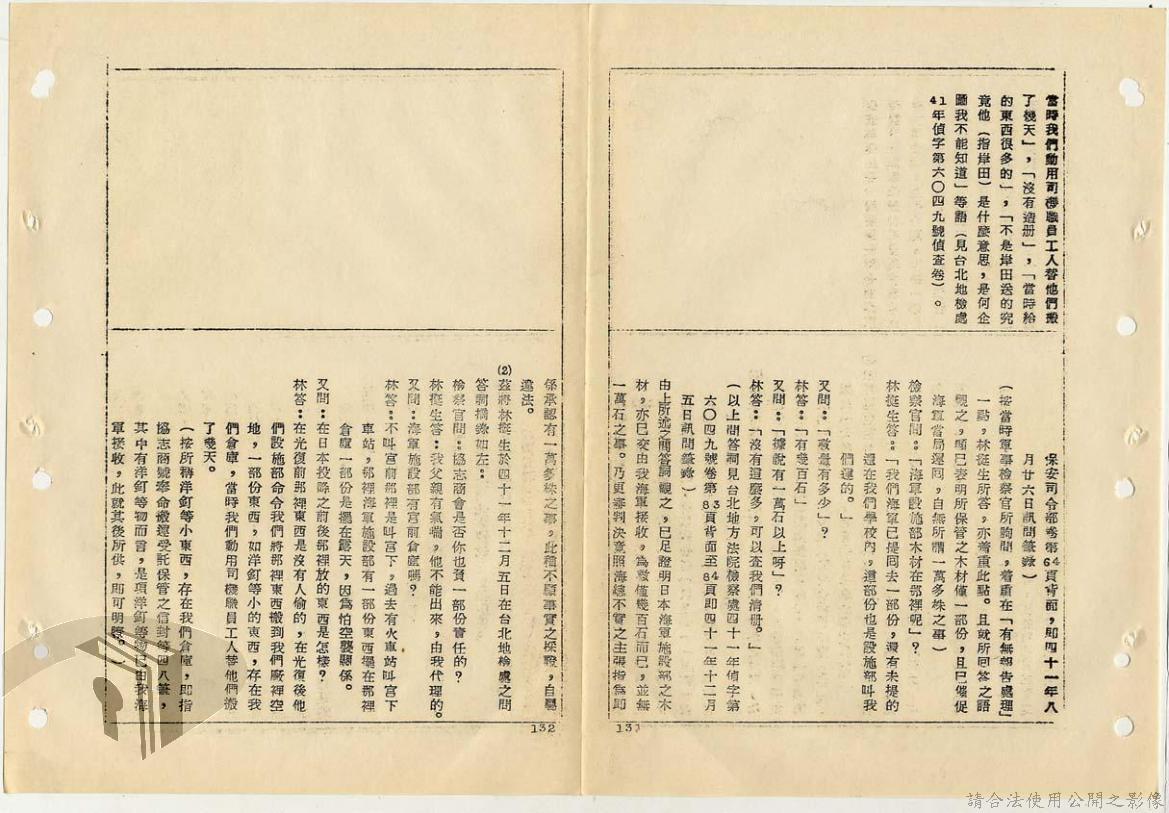 當時我們動用司機職員工人替他們搬
了幾天」，「沒有造册」，「當時給
的東西很多的」，「不是岸田送的究
竟他（指岸田）是什麼意思，是何企
圖我不能知道」等語（見台北地檢處
41年偵字第六〇四九號偵查卷）。
保安司令部卷第64頁背面，即四十一年八
月廿六日訊問筆錄）
（按當時軍事檢察官所詢問，着重在「有無報告處理」
一點，林挺生所答，亦着重此點。且就所回答之語
觀之，顯已表明所保管之木材僅一部份，且已催促
海軍當局運回，自無所謂一萬多株之事）
檢察官問：「海軍設施部木材在那裡呢」？
林挺生答：「我們海軍已提回去一部份，還有未提的
還在我們學校內，這部份也是設施部叫我
們運的。」
又問：「數量有多少」？
林答：「有幾百石」
又問：「據說有一萬石以上呀」？
林答：「沒有這麼多，可以查我們清册。」
（以上問答詞見台北地方法院檢察處四十一年偵字第
六〇四九號卷第83頁背面至84頁即四十一年十二月
五日訊問筆錄）
由上所述之問答詞觀之，已足證明日本海軍施設部之木
材，亦已交由我海軍接收，為數僅幾百石而已，並無
一萬石之事。乃更審判決竟照海總不實之主張指為即
131
係承認有一萬多株之事，此種不顧事實之採證，自屬
違法。
(2)茲將林挺生於四十一年十二月五日在台北地檢處之問
答詞摘錄如左：
檢察官問：協志商會是否你也負一部份責任的？
林挺生答：我父親有氣喘，他不能出來，由我代理的。
又問：海軍施設部有宮前倉庫嗎？
林答：不叫宮前那裡是叫宮下，過去有火車站叫宮下
車站，那裡海軍施設部有一部份東西堀在那裡
倉庫一部份是擺在露天，因為怕空襲關係。
又問：在日本投降之前後那裡放的東西是怎樣？
林答：在光復前那裡東西是沒有人偷的，在光復後他
們設施部命令我們將那裡東西搬到我們廠裡空
地，一部份東西，如洋釘等小的東西，存在我
們倉庫，當時我們動用司機職員工人替他們搬
了幾天。
（按所稱洋釘等小東西，存在我們倉庫，即指
協志商號奉命搬運受託保管之信封等四八筆，
其中有洋釘等物而言，是項洋釘等物已由我海
軍接收，此就其後所供，即可明瞭。）
132
請合法使用公開之影像